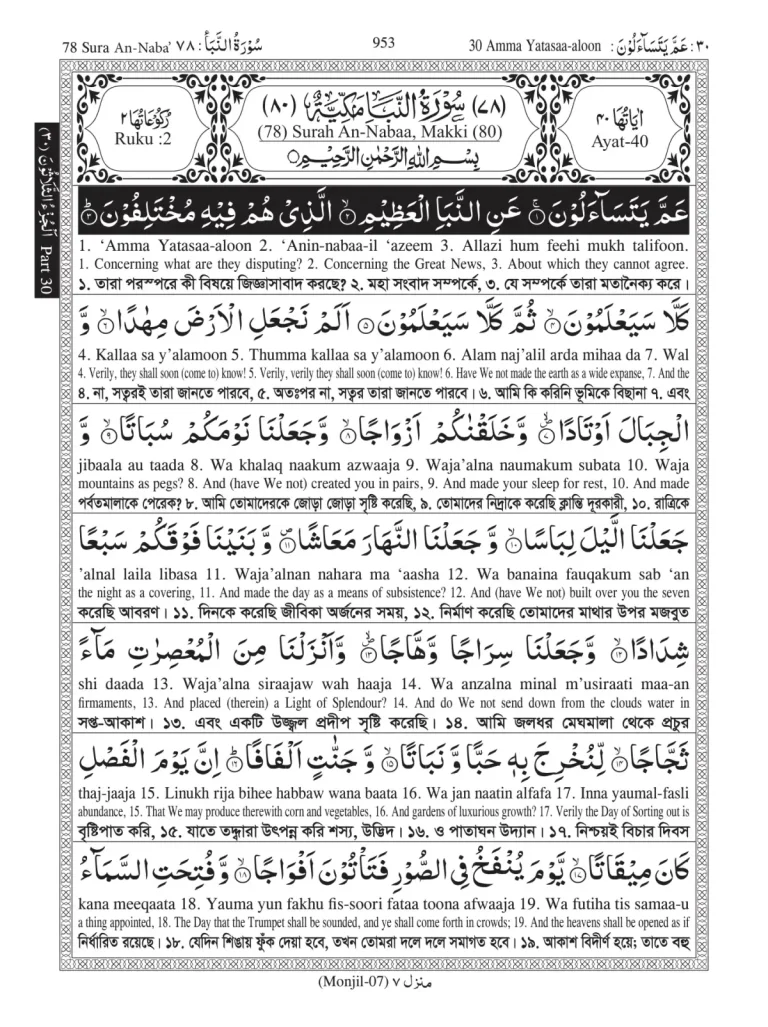 78 Sura An-Naba' ٧٨ : سُوْرَةُ النَّبَأِ
953
30 Amma Yatasaa-aloon : عَمَّ يَتَسَآءَلُوْنَ : ٣٠
رُكُوْعَاتُهَا ٢
Ruku :2
(٨٠) سُوْرَةُ النَّبَاِ مَكِّيَّةٌ (٧٨)
(78) Surah An-Nabaa, Makki (80)
بِسْمِ اللهِ الرَّحْمٰنِ الرَّحِيْمِ
اٰيَاتُهَا ٤٠
Ayat-40
اَلْجُزْءُ الثَّلَاثُوْنَ (٣٠)
Part 30
عَمَّ يَتَسَآءَلُوْنَ ۚ﴿١﴾ عَنِ النَّبَاِ الْعَظِيْمِ ۙ﴿٢﴾ الَّذِىْ هُمْ فِيْهِ مُخْتَلِفُوْنَ ؕ﴿٣﴾
1. ‘Amma Yatasaa-aloon 2. ‘Anin-nabaa-il ‘azeem 3. Allazi hum feehi mukh talifoon.
1. Concerning what are they disputing? 2. Concerning the Great News, 3. About which they cannot agree.
১. তারা পরস্পরে কী বিষয়ে জিজ্ঞাসাবাদ করছে? ২. মহা সংবাদ সম্পর্কে, ৩. যে সম্পর্কে তারা মতানৈক্য করে।
كَلَّا سَيَعْلَمُوْنَ ۙ﴿٤﴾ ثُمَّ كَلَّا سَيَعْلَمُوْنَ ﴿٥﴾ اَلَمْ نَجْعَلِ الْاَرْضَ مِهٰدًا ۙ﴿٦﴾ وَّ
4. Kallaa sa y’alamoon 5. Thumma kallaa sa y’alamoon 6. Alam naj’alil arda mihaa da 7. Wal
4. Verily, they shall soon (come to) know! 5. Verily, verily they shall soon (come to) know! 6. Have We not made the earth as a wide expanse, 7. And the
৪. না, সত্বরই তারা জানতে পারবে, ৫. অতঃপর না, সত্বর তারা জানতে পারবে। ৬. আমি কি করিনি ভূমিকে বিছানা ৭. এবং
الْجِبَالَ اَوْتَادًا ۪ۙ﴿٧﴾ وَّخَلَقْنٰكُمْ اَزْوَاجًا ۙ﴿٨﴾ وَّجَعَلْنَا نَوْمَكُمْ سُبَاتًا ۙ﴿٩﴾ وَّ
jibaala au taada 8. Wa khalaq naakum azwaaja 9. Waja’alna naumakum subata 10. Waja
mountains as pegs? 8. And (have We not) created you in pairs, 9. And made your sleep for rest, 10. And made
পর্বতমালাকে পেরেক? ৮. আমি তোমাদেরকে জোড়া জোড়া সৃষ্টি করেছি, ৯. তোমাদের নিদ্রাকে করেছি ক্লান্তি দূরকারী, ১০. রাত্রিকে
جَعَلْنَا الَّيْلَ لِبَاسًا ۙ﴿١٠﴾ وَّ جَعَلْنَا النَّهَارَ مَعَاشًا ۪﴿١١﴾ وَّ بَنَيْنَا فَوْقَكُمْ سَبْعًا
’alnal laila libasa 11. Waja’alnan nahara ma ‘aasha 12. Wa banaina fauqakum sab ‘an
the night as a covering, 11. And made the day as a means of subsistence? 12. And (have We not) built over you the seven
করেছি আবরণ। ১১. দিনকে করেছি জীবিকা অর্জনের সময়, ১২. নির্মাণ করেছি তোমাদের মাথার উপর মজবুত
شِدَادًا ۙ﴿١٢﴾ وَّجَعَلْنَا سِرَاجًا وَّهَّاجًا ۪ۙ﴿١٣﴾ وَّاَنْزَلْنَا مِنَ الْمُعْصِرٰتِ مَآءً
shi daada 13. Waja’alna siraajaw wah haaja 14. Wa anzalna minal m’usiraati maa-an
firmaments, 13. And placed (therein) a Light of Splendour? 14. And do We not send down from the clouds water in
সপ্ত-আকাশ। ১৩. এবং একটি উজ্জ্বল প্রদীপ সৃষ্টি করেছি। ১৪. আমি জলধর মেঘমালা থেকে প্রচুর
ثَجَّاجًا ۙ﴿١٤﴾ لِّنُخْرِجَ بِهٖ حَبًّا وَّ نَبَاتًا ۙ﴿١٥﴾ وَّ جَنّٰتٍ اَلْفَافًا ؕ﴿١٦﴾ اِنَّ يَوْمَ الْفَصْلِ
thaj-jaaja 15. Linukh rija bihee habbaw wana baata 16. Wa jan naatin alfafa 17. Inna yaumal-fasli
abundance, 15. That We may produce therewith corn and vegetables, 16. And gardens of luxurious growth? 17. Verily the Day of Sorting out is
বৃষ্টিপাত করি, ১৫. যাতে তদ্দ্বারা উৎপন্ন করি শস্য, উদ্ভিদ। ১৬. ও পাতাঘন উদ্যান। ১৭. নিশ্চয়ই বিচার দিবস
كَانَ مِيْقَاتًا ۙ﴿١٧﴾ يَّوْمَ يُنْفَخُ فِى الصُّوْرِ فَتَاْتُوْنَ اَفْوَاجًا ۙ﴿١٨﴾ وَّ فُتِحَتِ السَّمَآءُ
kana meeqaata 18. Yauma yun fakhu fis-soori fataa toona afwaaja 19. Wa futiha tis samaa-u
a thing appointed, 18. The Day that the Trumpet shall be sounded, and ye shall come forth in crowds; 19. And the heavens shall be opened as if
নির্ধারিত রয়েছে। ১৮. যেদিন শিঙায় ফুঁক দেয়া হবে, তখন তোমরা দলে দলে সমাগত হবে। ১৯. আকাশ বিদীর্ণ হয়ে; তাতে বহু
(Monjil-07) منزل ٧